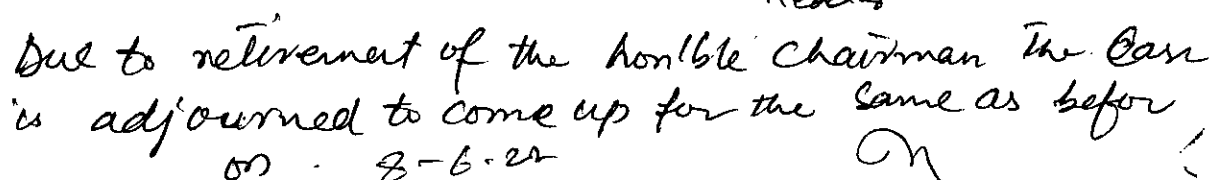 Due to retirement of the hon'ble chairman The Case
is adjourned to come up for the same as befor
on . 8-6-22